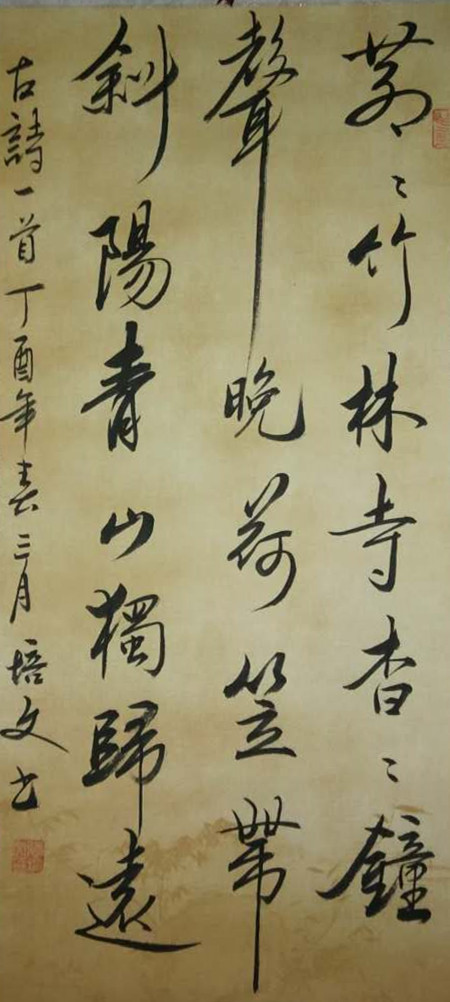 蒼〻竹林寺杳〻鐘
聲晚荷笠帶
斜陽青山獨歸遠
古詩一首丁酉年春三月培文书